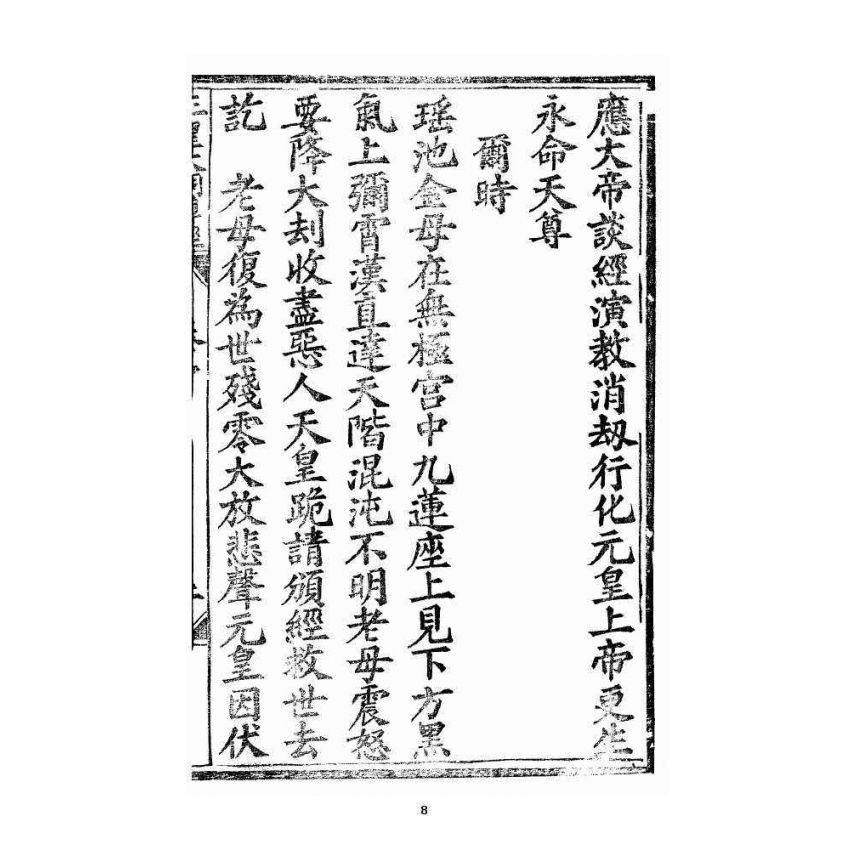 應大帝談經演教消刼行化元皇上帝更生
永命天尊
爾時
瑤池金母在無極宮中九蓮座上見下方黑
氣上彌霄漢直達天階混沌不明老母震怒
要降大刼收盡惡人天皇跪請頒經救世去
訖　老母復為世殘零大放悲聲元皇因伏
8